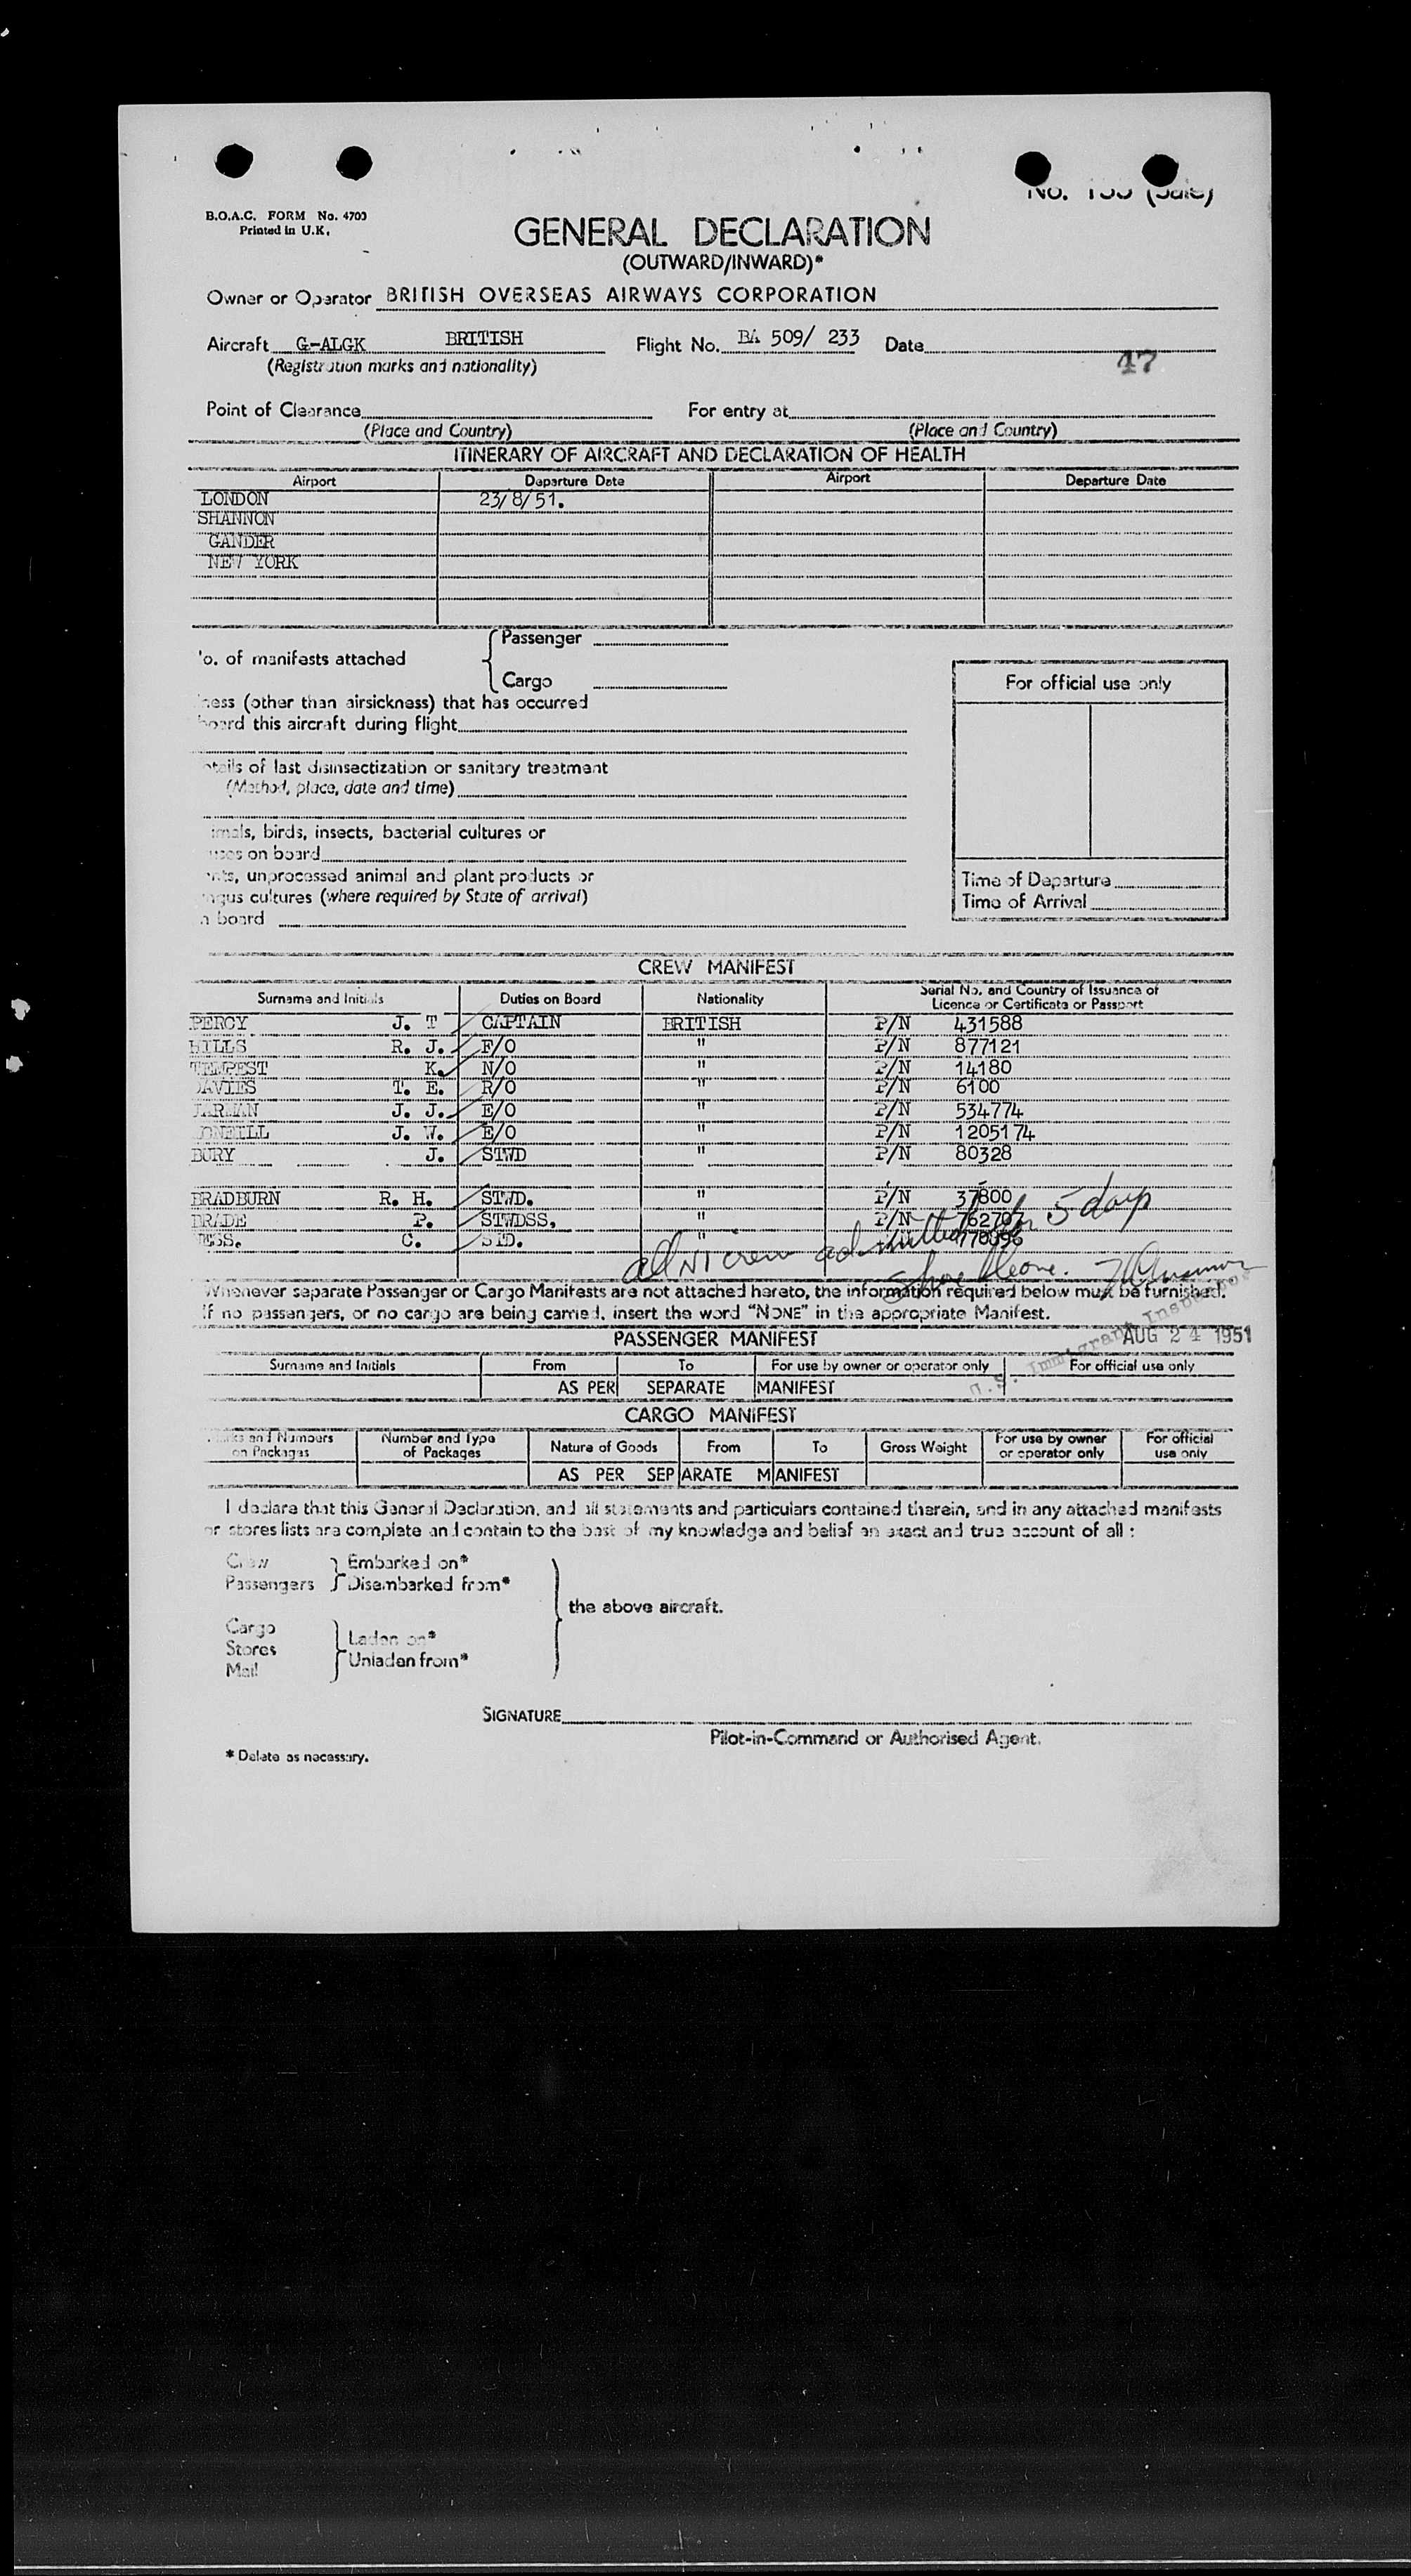 No. 133 (Sale)
B.O.A.C. FORM No. 4703
Printed in U.K.
GENERAL DECLARATION
(OUTWARD/INWARD)*
Owner or Operator BRITISH OVERSEAS AIRWAYS CORPORATION
Aircraft G-ALGK BRITISH Flight No. BA 509/ 233 Date
(Registration marks and nationality) 47
Point of Clearance For entry at
(Place and Country) (Place and Country)
ITINERARY OF AIRCRAFT AND DECLARATION OF HEALTH
Airport Departure Date Airport Departure Date
LONDON 23/8/51.
SHANNON
GANDER
NEW YORK
'o. of manifests attached { Passenger
Cargo
For official use only
ness (other than airsickness) that has occurred
board this aircraft during flight
etails of last disinsectization or sanitary treatment
(Method, place, date and time)
imals, birds, insects, bacterial cultures or
uses on board
nts, unprocessed animal and plant products or
ngus cultures (where required by State of arrival)
n board
Time of Departure
Time of Arrival
CREW MANIFEST
Surname and Initials Duties on Board Nationality Serial No. and Country of Issuance of Licence or Certificate or Passport
PERCY J. T CAPTAIN BRITISH P/N 431588
HILLS R. J. F/O " P/N 877121
TEMPEST K. N/O " P/N 14180
DAVIES T. E. R/O " P/N 6100
JARMAN J. J. E/O " P/N 534774
ONEILL J. W. E/O " P/N 1205174
BURY J. STWD " P/N 80328
BRADBURN R. H. STWD. " P/N 37800
BRADE P. STWDSS. " P/N 762707
C. STD. " 778096
all crew admitted for 5 days
Whenever separate Passenger or Cargo Manifests are not attached hereto, the information required below must be furnished.
If no passengers, or no cargo are being carried, insert the word "NONE" in the appropriate Manifest.
PASSENGER MANIFEST
U.S. Immigrant Inspector
AUG 24 1951
Surname and Initials From To For use by owner or operator only For official use only
AS PER SEPARATE MANIFEST
CARGO MANIFEST
Marks and Numbers on Packages Number and Type of Packages Nature of Goods From To Gross Weight For use by owner or operator only For official use only
AS PER SEPARATE MANIFEST
I declare that this General Declaration, and all statements and particulars contained therein, and in any attached manifests
or stores lists are complete and contain to the best of my knowledge and belief an exact and true account of all :
Crew } Embarked on*
Passengers } Disembarked from*
the above aircraft.
Cargo
Stores } Laden on*
Mail } Unladen from*
SIGNATURE
Pilot-in-Command or Authorised Agent.
* Delete as necessary.